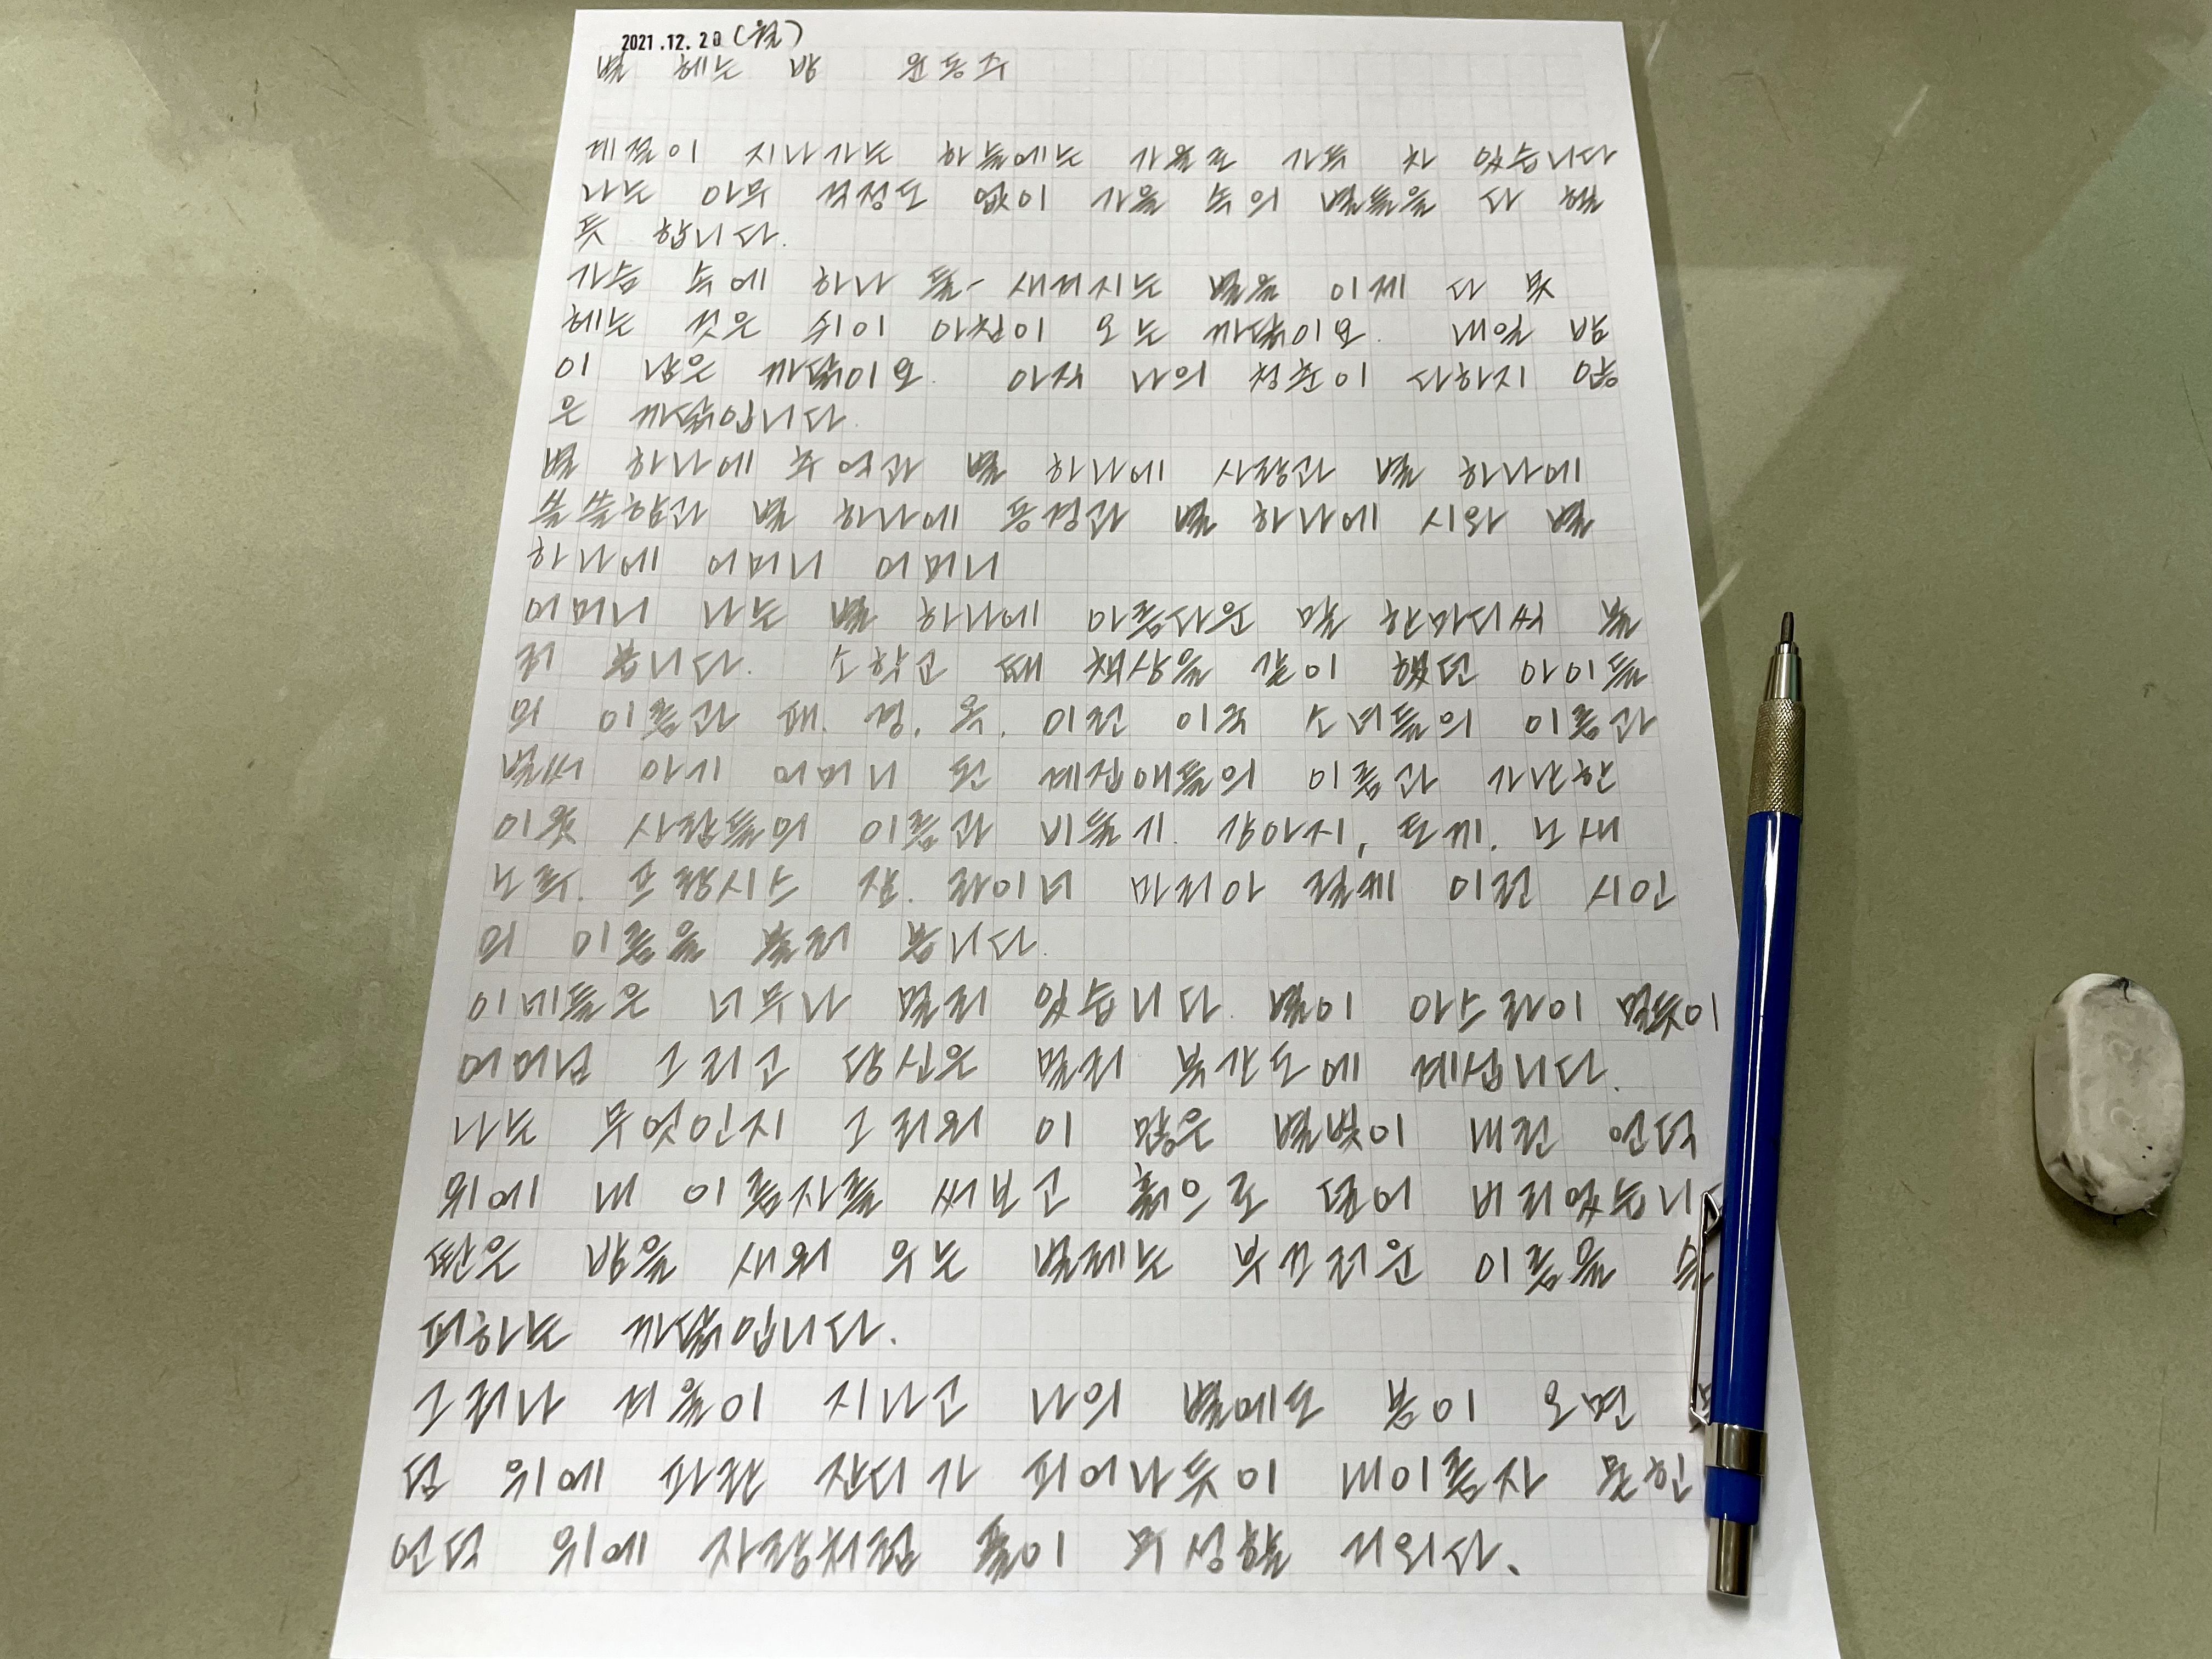 2021.12.20(월)
별 헤는 밤 윤동주
계절이 지나가는 하늘에는 가을로 가득 차 있습니다
나는 아무 걱정도 없이 가을 속의 별들을 다 헬
듯 합니다.
가슴 속에 하나 둘- 새겨지는 별을 이제 다 못
헤는 것은 쉬이 아침이 오는 까닭이요. 내일 밤
이 남은 까닭이요. 아직 나의 청춘이 다하지 않
은 까닭입니다.
별 하나에 추억과 별 하나에 사랑과 별 하나에
쓸쓸함과 별 하나에 동경과 별 하나에 시와 별
하나에 어머니 어머니
어머니 나는 별 하나에 아름다운 말 한마디씩 불
러 봅니다. 소학교 때 책상을 같이 했던 아이들
의 이름과 패. 경, 옥, 이런 이국 소녀들의 이름과
벌써 아기 어머니 된 계집애들의 이름과 가난한
이웃 사람들의 이름과 비둘기. 강아지, 토끼. 노새
노루. 프랑시스 잠. 라이너 마리아 릴케 이런 시인
의 이름을 불러 봅니다.
이네들은 너무나 멀리 있습니다. 별이 아스라이 멀듯이
어머님 그리고 당신은 멀리 북간도에 계십니다.
나는 무엇인지 그리워 이 많은 별빛이 내린 언덕
위에 내 이름자를 써보고 흙으로 덮어 버리었습니
딴은 밤을 새워 우는 벌레는 부끄러운 이름을 슬
퍼하는 까닭입니다.
그러나 겨울이 지나고 나의 별에도 봄이 오면
덤 위에 파란 잔디가 피어나듯이 내이름자 묻힌
언덕 위에 자랑처럼 풀이 무성할 거외다.